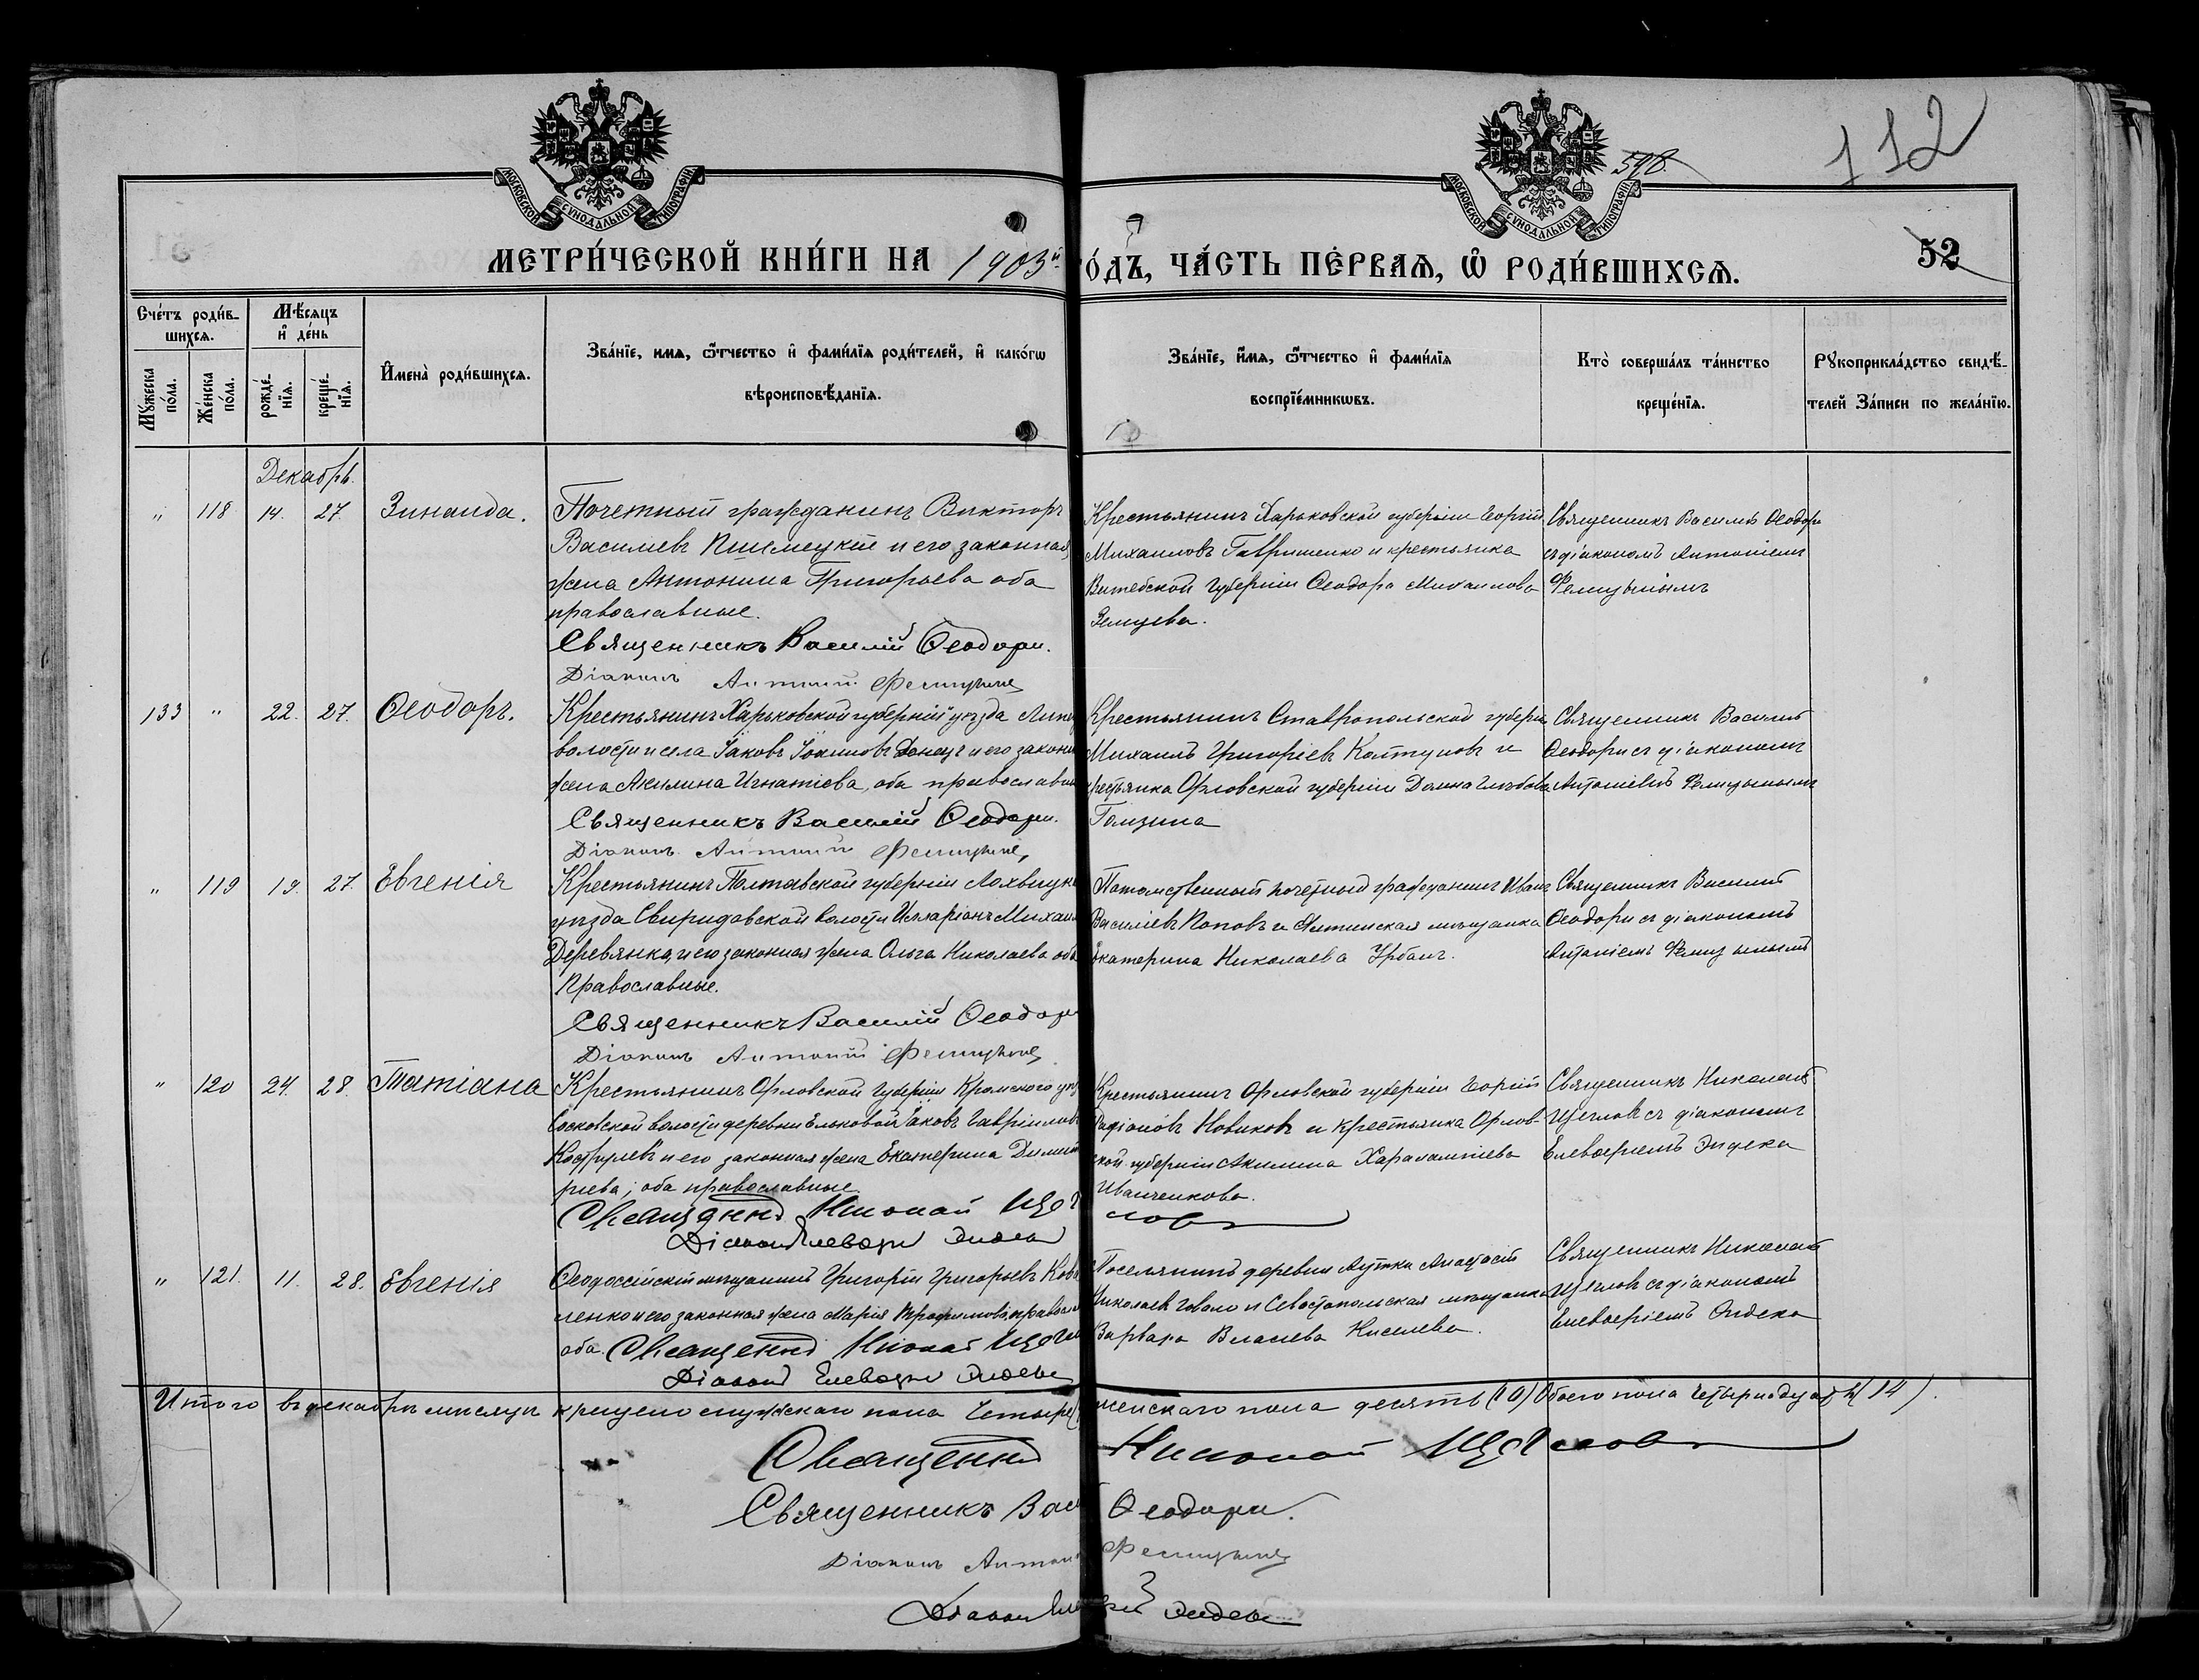 МОСКОВСКОЙ СѴНОДАЛЬНОЙ ТИПОГРАФІИ
МОСКОВСКОЙ СѴНОДАЛЬНОЙ ТИПОГРАФІИ
598.
112
52
МЕТРИ́ЧЕСКОЙ КНИ́ГИ НА 1903й
О́ДЪ, ЧА́СТЬ ПЕ́РВАѦ, Ѽ РОДИ́ВШИХСѦ.
Сче́тъ роди́в-
шихсѧ.
Мꙋжеска по́ла.
Же́нска по́ла.
Мѣ́сѧцъ
и҆ де́нь
рожде́-
нїѧ.
креще́-
нїѧ.
И҆мена̀ роди́вшихсѧ.
Зва́нїе, имѧ, ѻ҆́тчество и҆ фами́лїѧ роди́телей, и҆ како́гѡ
вѣроисповѣ́данїѧ.
Зва́нїе, и҆́мѧ, ѻ҆́тчество и҆ фами́лїѧ
воспрїе́мникѡвъ.
Кто̀ соверша́лъ та́инство
креще́нїѧ.
Рꙋкоприкла́дство свидѣ́-
телей За́писи по жела́нїю.
Декабрь.
" 118 14. 27. Зинаида.
Почетный гражданинъ Викторъ
Василіевъ и его законная
жена Антонина Григорьева оба
православные.
Священникъ Василій Ѳеодори.
Діаконъ Антоній
Крестьянинъ Харьковской губерніи Георгій
Михаиловъ Гавришенко и крестьянка
Витебской губерніи Ѳеодора Михаилова
Земцева.
Священникъ Василій Ѳеодори
съ діакономъ Антоніемъ
133 " 22. 27. Ѳеодоръ.
Крестьянинъ Харьковской губерніи и уѣзда
волости и села Іаковъ Іоакимовъ Донецъ и его законн
жена Акилина Игнатіева, оба православн
Священникъ Василій Ѳеодори.
Діаконъ Антоній
Крестьянинъ Ставропольской губерн
Михаилъ Григоріевъ Колтуновъ и
крестьянка Орловской губерніи Домна Глебова
Священникъ Василій
Ѳеодори съ діакономъ
Антоніемъ
" 119 19. 27. Евгенія
Крестьянинъ Полтавской губерніи Лохвицка
уѣзда Свиридовской волости Илларіонъ Михаил
Деревянко, и его законная жена Ольга Николаева оба
Православные.
Священникъ Василій Ѳеодори
Діаконъ Антоній
Потомственный почетный гражданинъ Иванъ
Василіевъ Поповъ и Ялтинская мѣщанка
Екатерина Николаева Урбанъ.
Священникъ Василій
Ѳеодори съ діакономъ
Антоніемъ
" 120 24. 28. Татіана
Крестьянинъ Орловской губерніи Кромского уѣз
Сосковской волости деревни Ельковой Іаковъ Гавріиловъ
и его законная жена Екатерина Димит
ріева; оба православные
Священникъ Николай Щегловъ
Діаконъ Елевѳерій Эндека
Крестьянинъ Орловской губерніи Георгій
Родіоновъ Новиковъ и крестьянка Орлов-
ской губерніи Акилина Харалампіева
Иванченкова.
Священникъ Николай
Щегловъ съ діакономъ
Елевѳеріемъ Эндека
" 121. 11. 28. Евгенія
Ѳеодосійскій мѣщанинъ Григорій Григорьевъ Кова
ленко и его законная жена Марія Трофимова, правосл
оба. Священникъ Николай Щегло
Діаконъ Елевѳерій Эндека
Поселянинъ деревни Аутки Анастасій
Николаевъ и Севастопольская мѣщанка
Варвара Власіева Киселева.
Священникъ Николай
Щегловъ съ діакономъ
Елевѳеріемъ Эндека
Итого въ декабрѣ мѣсяцѣ крещено мужскаго пола четыре ( женскаго пола десять (10) Обоего пола четырнадцать (14).
Священникъ Николай Щегловъ
Священникъ Вас Ѳеодори.
Діаконъ Антон
Діаконъ Елевѳерій Эндека